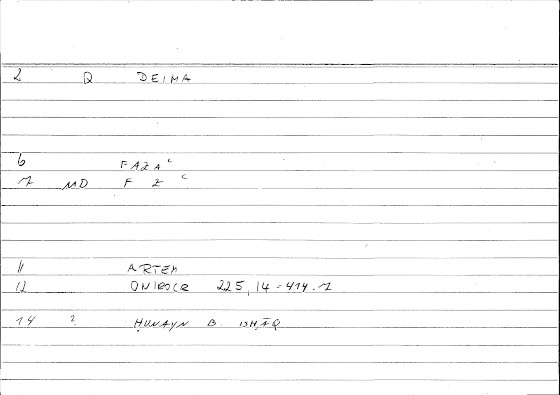 2 Q DEIMA
6 FAZAʿ
7 MD F Z ʿ
11 ARTEM
12 ONIROCR 225,14-414.7
14 ? ḤUNAYN B ISḤĀQ